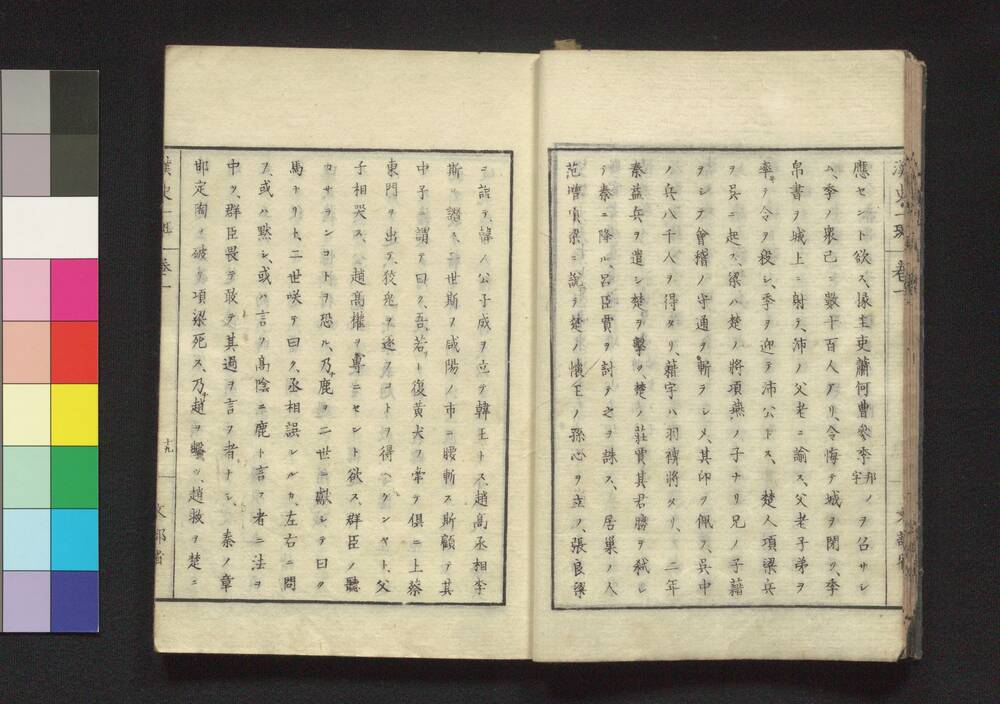 應セント欲ス、掾主吏蕭何曹參季邦字ノヲ召サシ
ム、季ノ衆已ニ數十百人アリ、令悔テ城ヲ閉ク、季
帛書ヲ城上ニ射テ、沛ノ父老ニ諭ス、父老子弟ヲ
率ヰテ令ヲ殺シ、季ヲ迎テ沛公トス、 楚人項梁兵
ヲ呉ニ起ス、梁ハ楚ノ將項燕ノ子ナリ兄ノ子藉
ヲシテ會稽ノ守通ヲ斬ラシメ、其印ヲ佩フ、呉中
ノ兵八千人ヲ得タリ、藉字ハ羽裨將タリ、 二年
秦益兵ヲ遣シ楚ヲ擊ツ、楚ノ莊賈其君勝ヲ弑シ
テ秦ニ降ル、呂臣賈ヲ討テ之ヲ誅ス、 居巢ノ人
范增項梁ニ說テ楚ノ懷王ノ孫心ヲ立ツ、張良梁
ニ說テ、韓ノ公子成ヲ立テ韓王トス、趙高丞相李
斯ヲ譖ス、二世斯ヲ咸陽ノ市ニ腰斬ス斯顧テ其
中子ニ謂テ曰ク、吾、若ト復黄犬ノ牽テ俱ニ上蔡
東門ヲ出テ、狡兔ヲ逐フコトヲ得ヘケンヤト、父
子相哭ス、 趙高權ヲ專ニセント欲ス、群臣ノ聽
カサランコトヲ恐ル、乃鹿ヲ二世ニ獻シテ曰ク
馬ナリト、二世咲テ曰ク、丞相誤レルカ、左右ニ問
フ、或ハ默シ、或ハ言フ高陰ニ鹿ト言フ者ニ法ヲ
中ツ、群臣畏テ敢テ其過ヲ言フ者ナシ、 秦ノ章
邯定陶ヲ破リ項梁死ス、乃趙ヲ擊ツ、趙救ヲ楚ニ
漢史一斑 卷一 十九 文部省